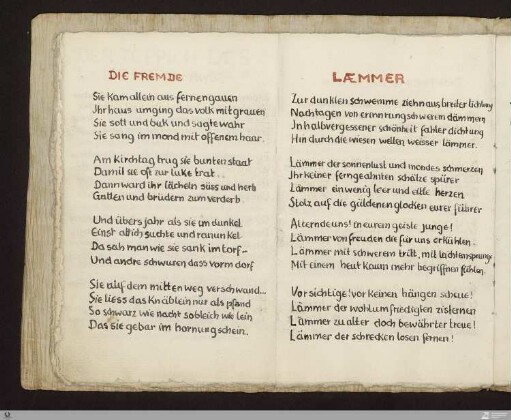 DIE FREMDE
Sie kam allein aus fernen gauen
Ihr haus umging das volk mit grauen
Sie sott und buk und sagte wahr
Sie sang im mond mit offenem haar.
Am Kirchtag trug sie bunten staat
Damit sie oft zur luke trat..
Dann ward ihr lächeln süss und herb
Gatten und brüdern zum verderb.
Und übers jahr als sie im dunkel
Einst attich suchte und ranunkel
Da sah man wie sie sank im torf_
Und andre schwuren dass vorm dorf
Sie auf dem mitten weg verschwand...
Sie liess das Knäblein nur als pfand
So schwarz wie nacht so bleich wie lein
Das sie gebar im hornungschein.
LÆMMER
Zur dunklen schwemme ziehn aus breiter lichtung
Nach tagen von erinnrungschwerem dämmern
In halbvergessener schönheit fahler dichtung
Hin durch die wiesen wellen weisser lämmer.
Lämmer der sonnenlust und mondes schmerzen
Ihr keiner ferngeahnten schätze spürer
Lämmer ein wenig leer und eitle herzen
Stolz auf die güldenen glocken eurer führer
Alternde uns! in eurem geiste junge!
Lämmer von freuden die für uns erkühlen
Lämmer mit schwerem tritt, mit leichtem sprunge
Mit einem heut kaum mehr begriffnen fühlen.
Vorsichtige! vor keinen hängen scheue!
Lämmer der wohlumfriedigten zisternen
Lämmer zu alter doch bewährter treue!
Lämmer der schreckenlosen fernen!